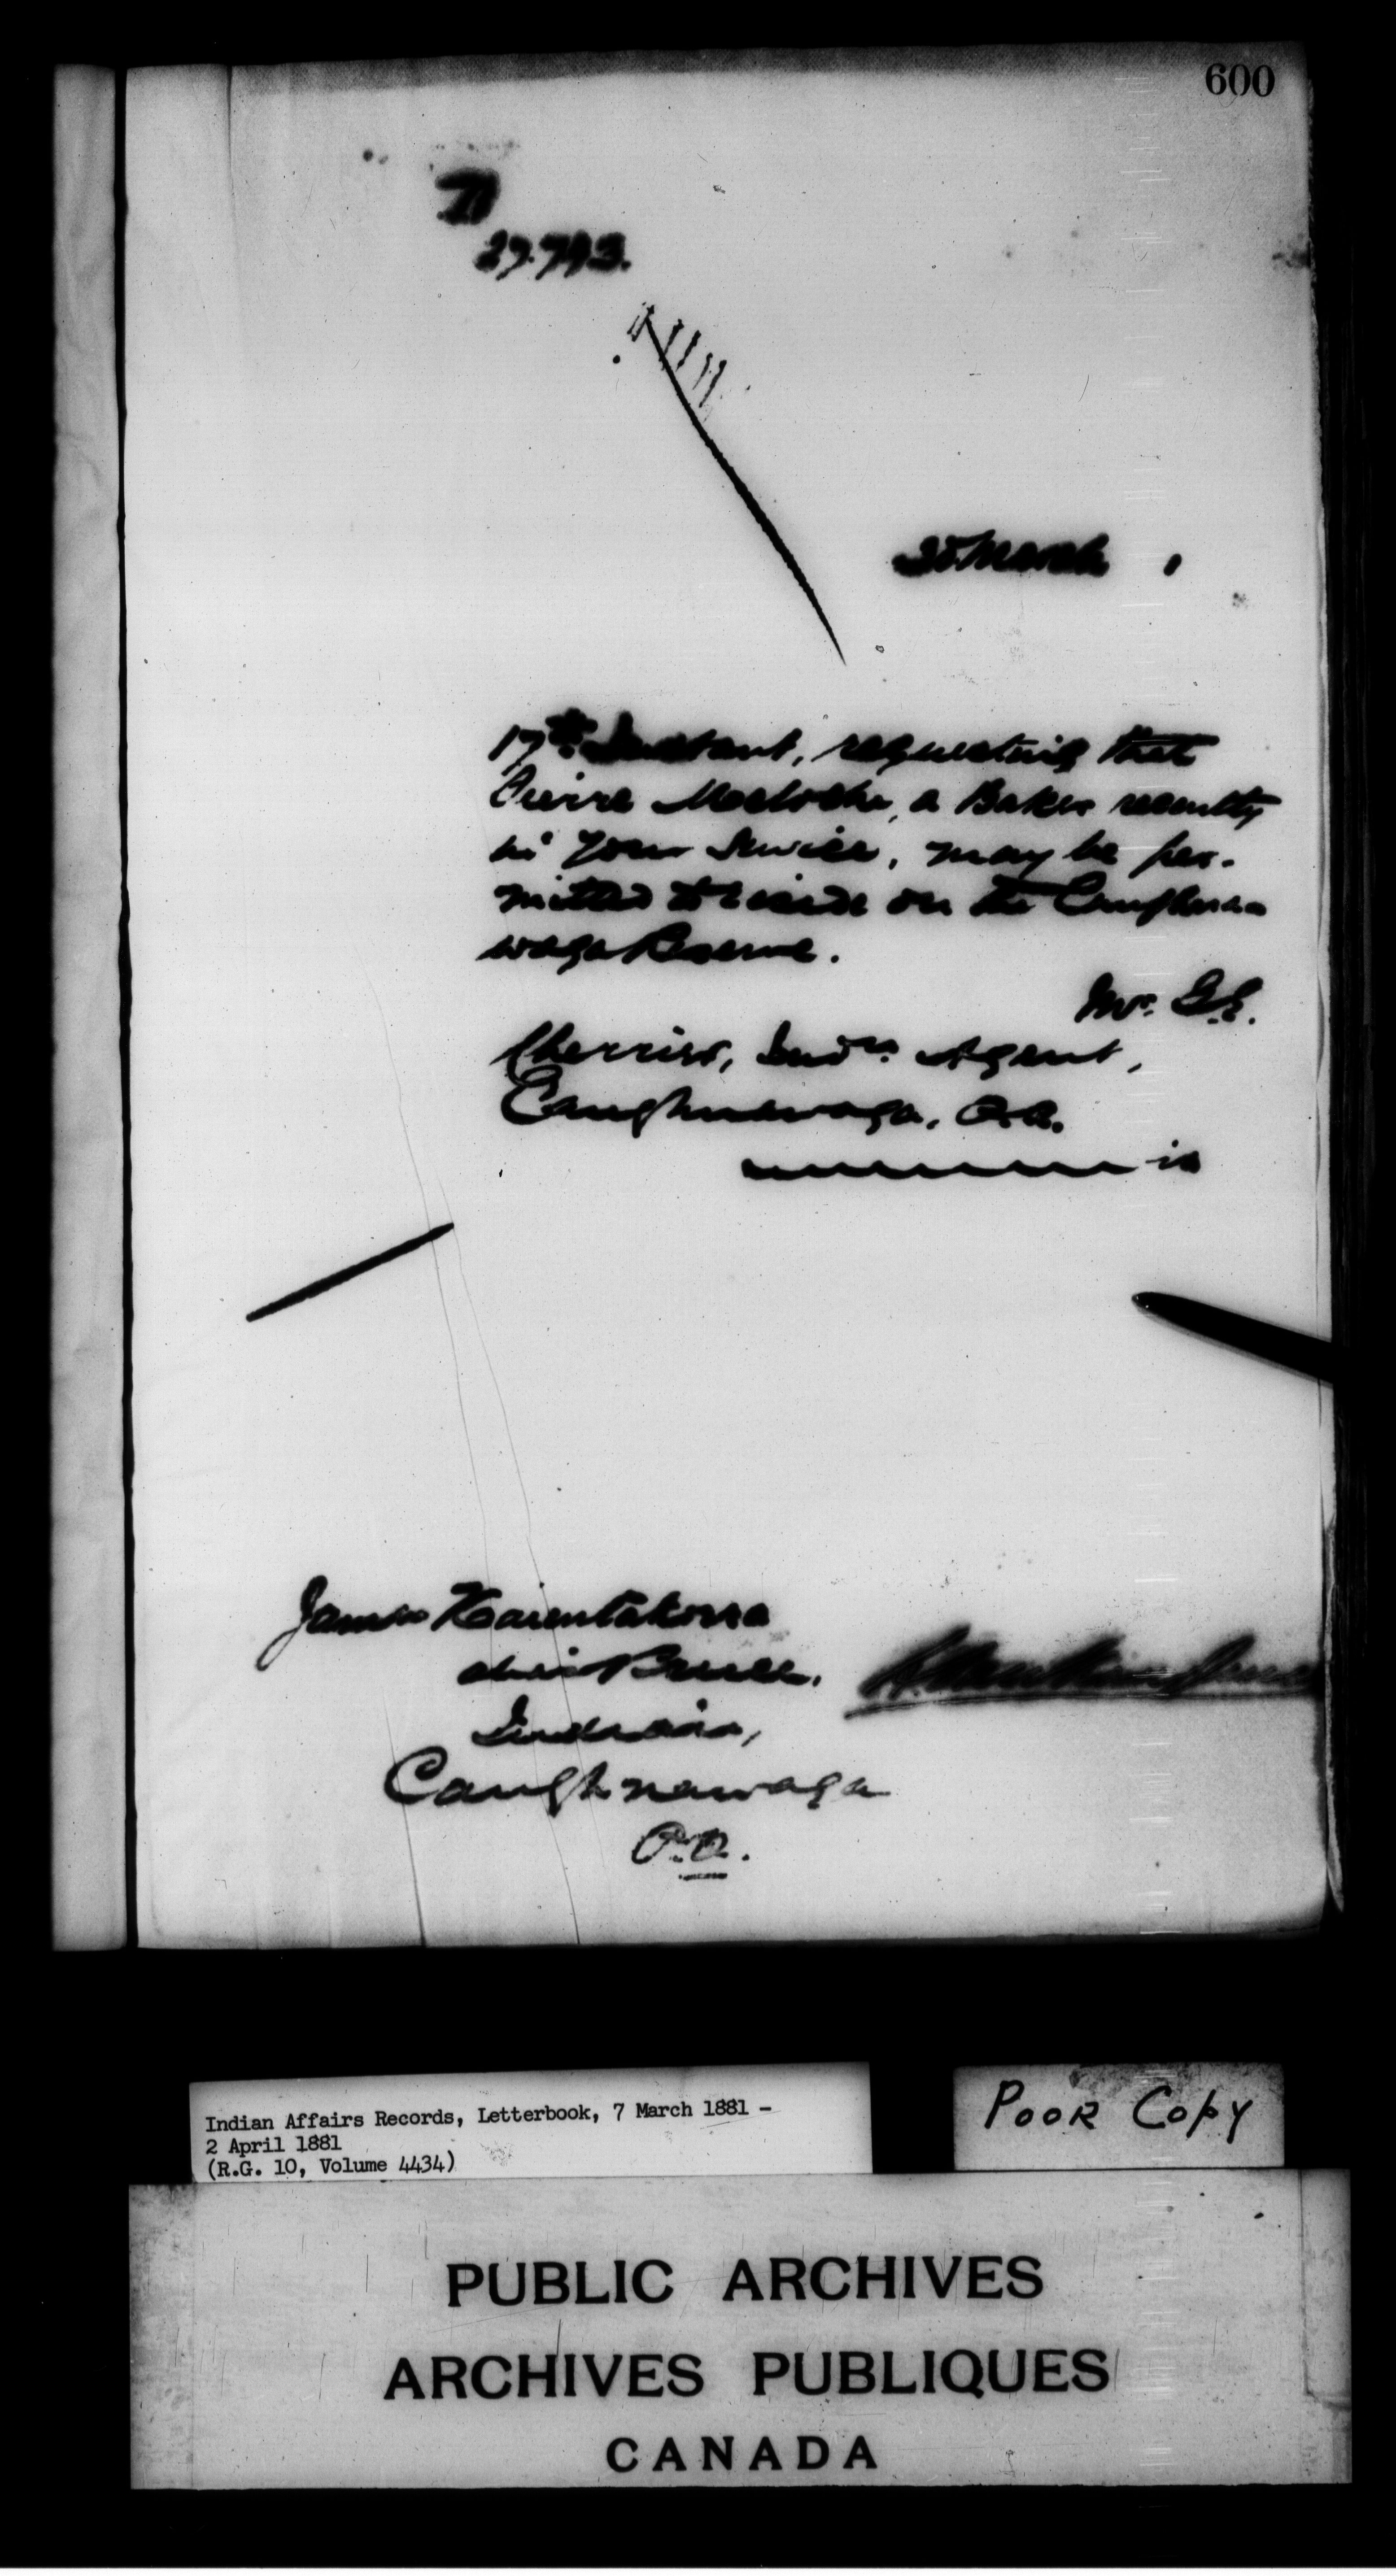 600
27.793.
March
17th Instant, requesting that
Pierre Meloche, a Baker recently
in your Service, may be per-
mitted to reside on the Caughna-
waga Reserve.
Mr. G.E.
Cherrier, Indn. Agent,
Caughnawaga, P.Q.
is
James Karentakowa
alias Bruce.
Indian,
Caughnawaga
P.Q.
Indian Affairs Records, Letterbook, 7 March 1881 -
2 April 1881
(R.G. 10, Volume 4434)
POOR COPY
PUBLIC ARCHIVES
ARCHIVES PUBLIQUES
CANADA